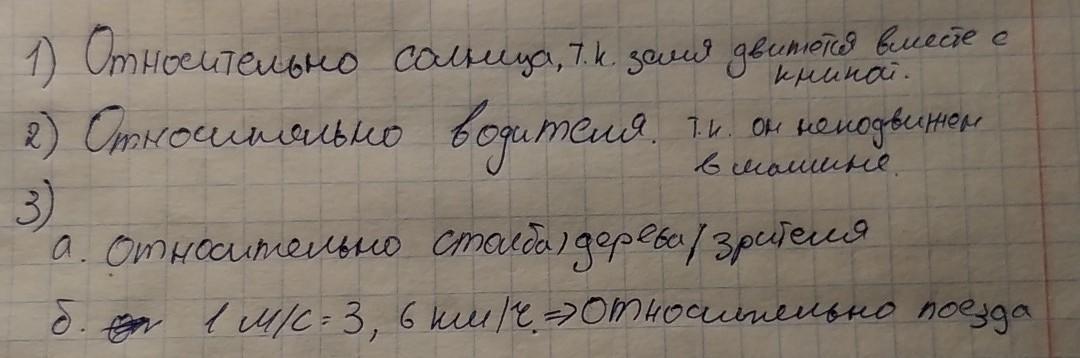 1) Относительно солнца, т.к. земля движется вместе с
книгой.
2) Относительно водителя. т.к. он неподвижен
в машине.
3)
а. относительно столба/дерева/зрителя
б. 1 м/с = 3,6 км/ч. ⇒ Относительно поезда